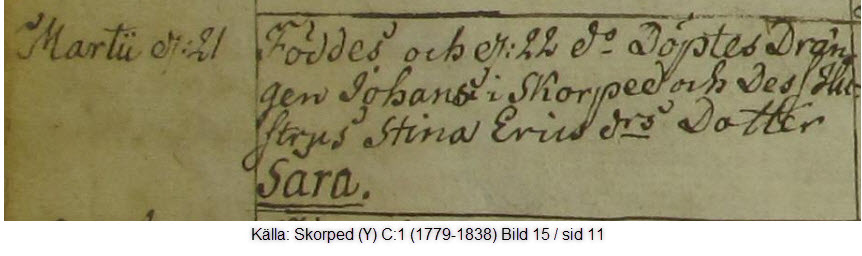 Martii d: 21 Föddes och d: 22 do Döptes Drän-
gen Johans i Skorped och Dess Hu-
strus Stina Erics drs Dotter
Sara.
Källa: Skorped (Y) C:1 (1779-1838) Bild 15 / sid 11